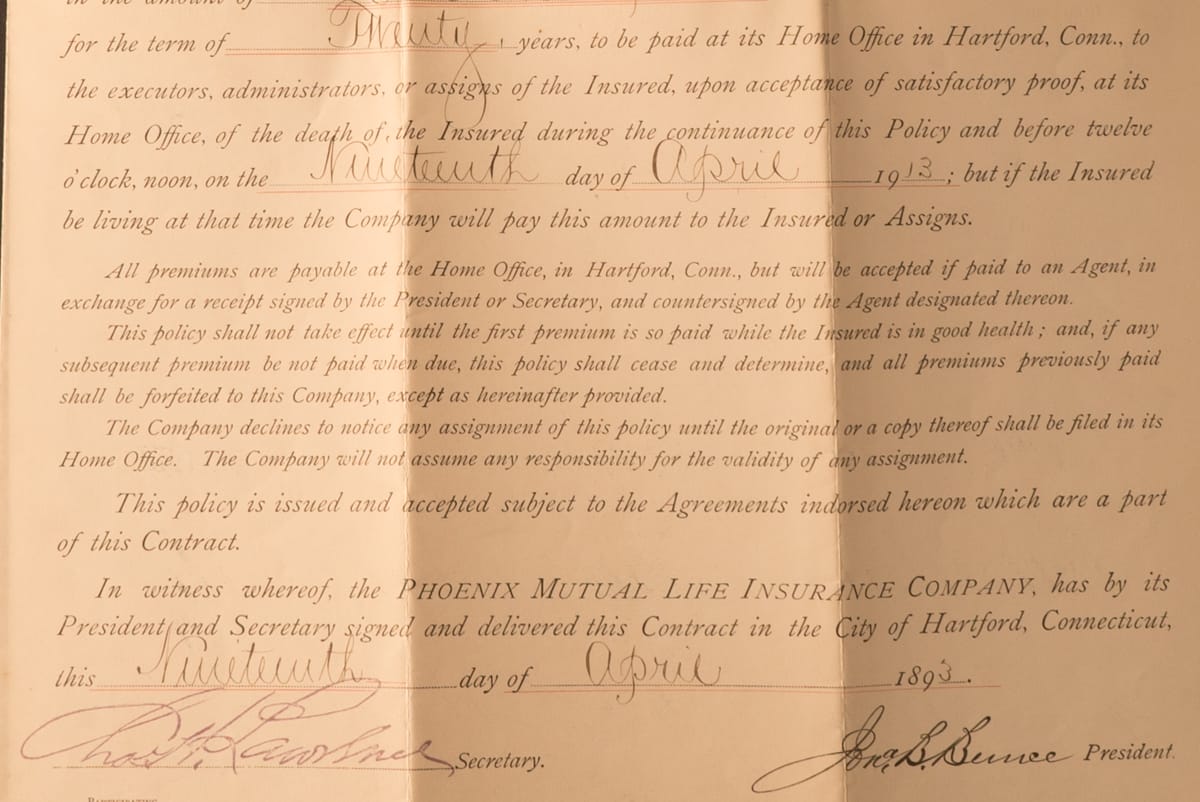 in the amount of
for the term of Twenty years, to be paid at its Home Office in Hartford, Conn., to
the executors, administrators, or assigns of the Insured, upon acceptance of satisfactory proof, at its
Home Office, of the death of the Insured during the continuance of this Policy and before twelve
o'clock, noon, on the Nineteenth day of April 1913; but if the Insured
be living at that time the Company will pay this amount to the Insured or Assigns.
All premiums are payable at the Home Office, in Hartford, Conn., but will be accepted if paid to an Agent, in
exchange for a receipt signed by the President or Secretary, and countersigned by the Agent designated thereon.
This policy shall not take effect until the first premium is so paid while the Insured is in good health; and, if any
subsequent premium be not paid when due, this policy shall cease and determine, and all premiums previously paid
shall be forfeited to this Company, except as hereinafter provided.
The Company declines to notice any assignment of this policy until the original or a copy thereof shall be filed in its
Home Office. The Company will not assume any responsibility for the validity of any assignment.
This policy is issued and accepted subject to the Agreements indorsed hereon which are a part
of this Contract.
In witness whereof, the PHOENIX MUTUAL LIFE INSURANCE COMPANY, has by its
President and Secretary signed and delivered this Contract in the City of Hartford, Connecticut,
this Nineteenth day of April 1893.
Secretary. Jna. B. Bunce President.